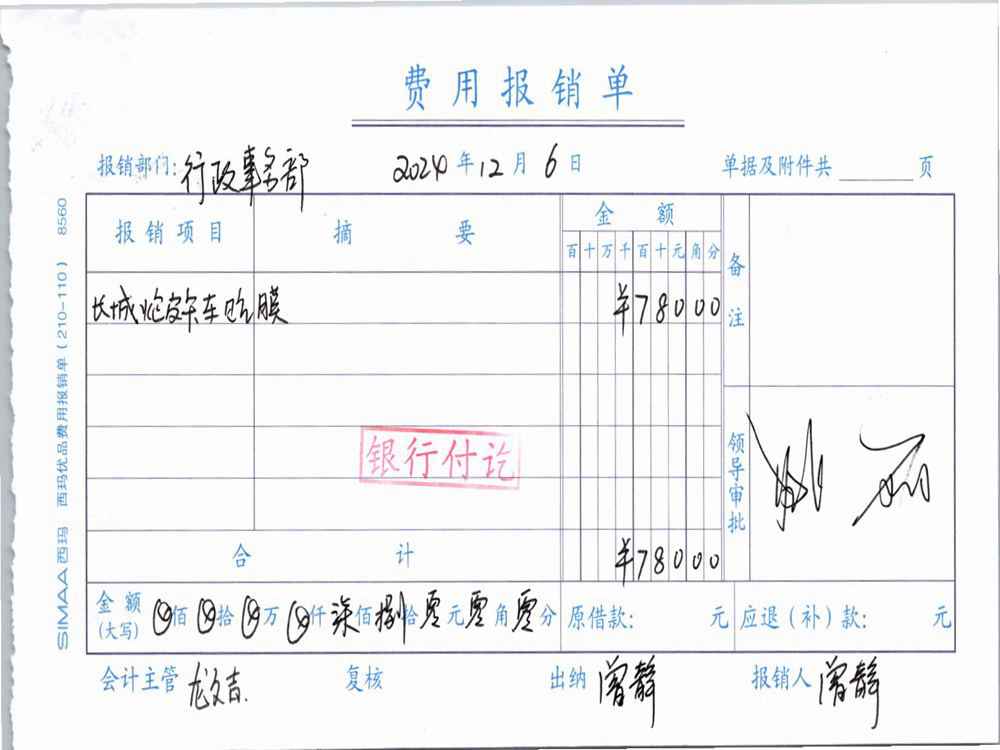 费用报销单
报销部门: 行政事务部 2024年12月6日 单据及附件共 页
报销项目 摘要 金额 备注
百十万千百十元角分
长城炮皮卡车贴膜 ¥78000
银行付讫
领导审批
合计 ¥78000
金额(大写) ⊗佰⊗拾⊗万⊗仟柒佰捌拾零元零角零分 原借款: 元 应退(补)款: 元
会计主管 龙文吉 复核 出纳 曾静 报销人 曾静
SIMAA西玛 西玛优品费用报销单(210-110) 8560